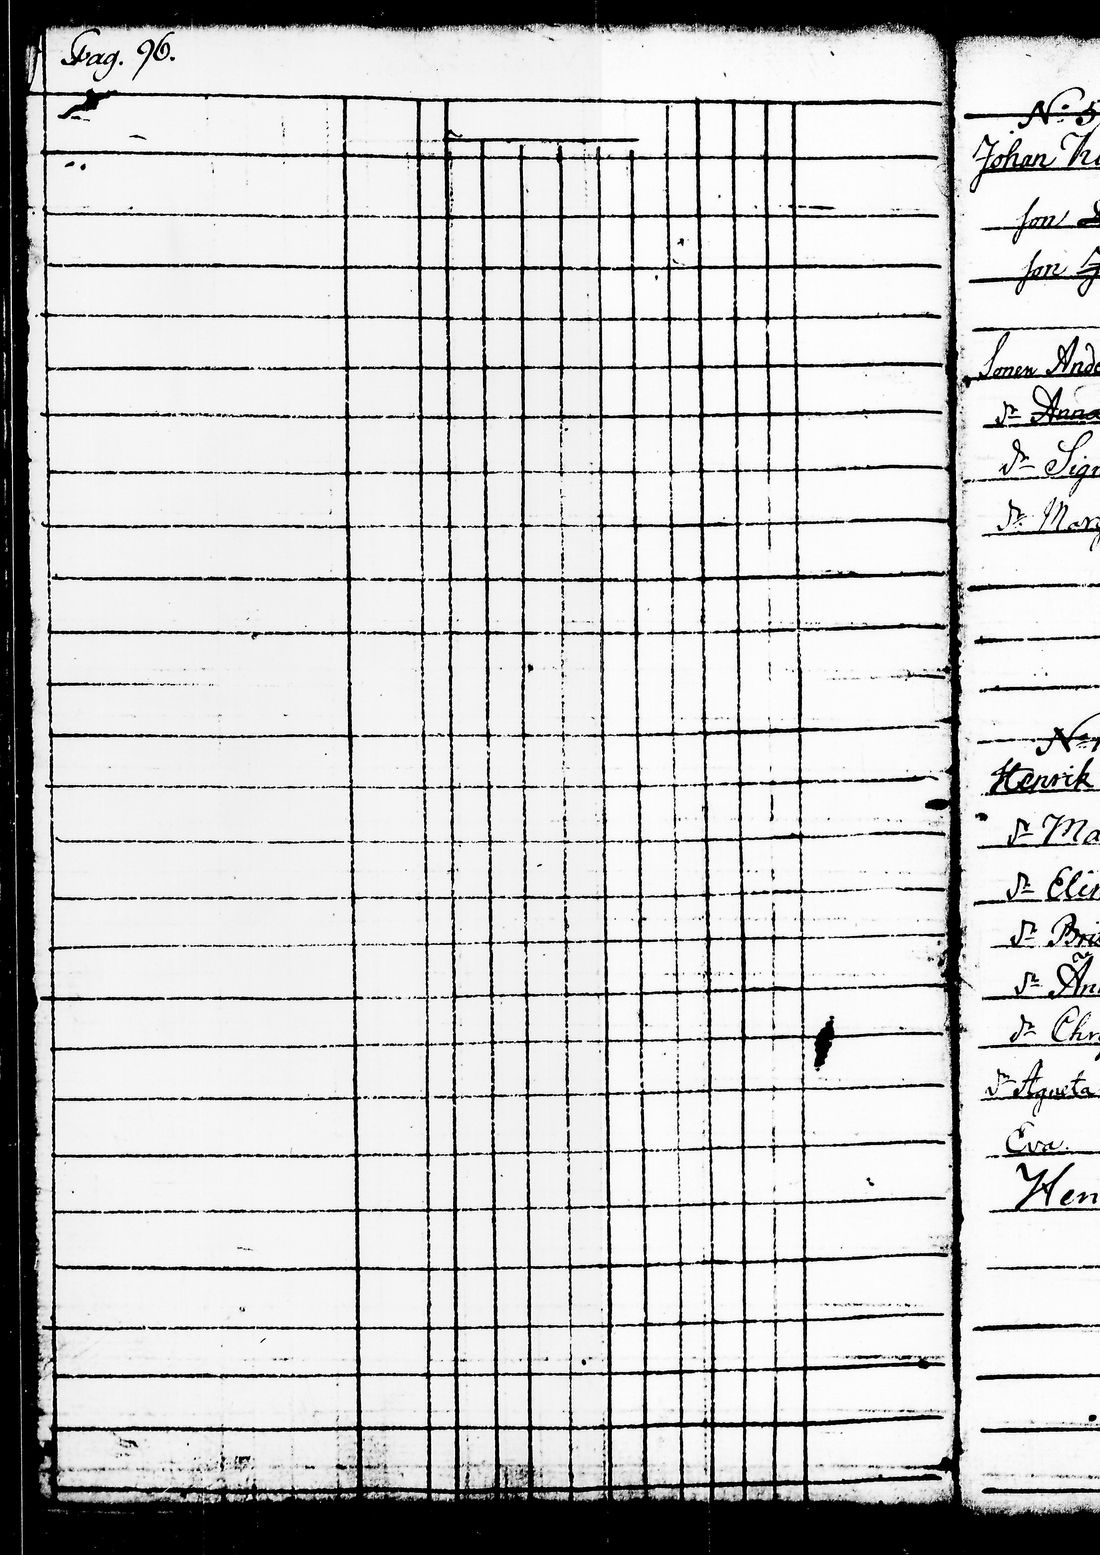 Pag. 96.
N:o 5
Johan
son
son
Sonen Ande
dr Anna
dr Sig
dr Marg
N:o
Henrik
dr Ma
dr Elin
dr Bri
dr An
dr Chr
dr Agneta
Eva.
Hen